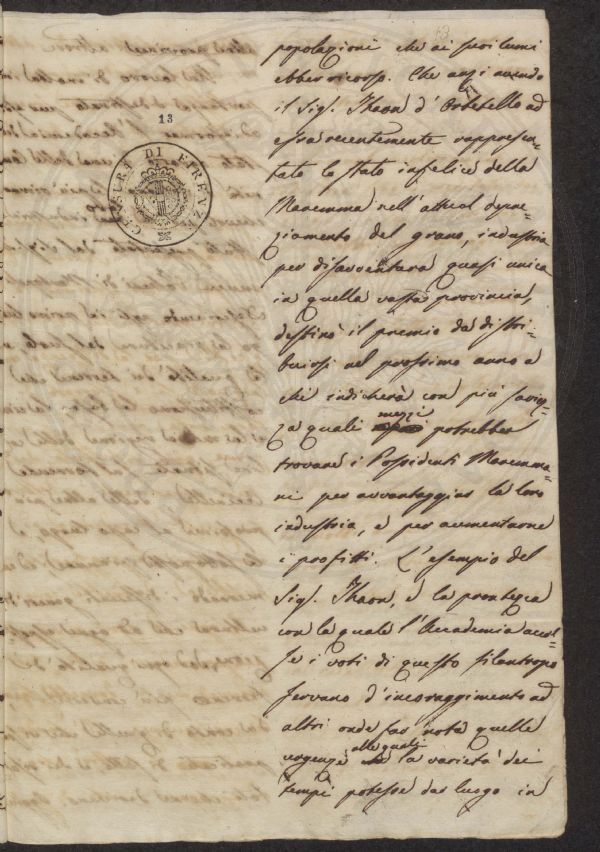 13
CENSURA DI FIRENZE
popolazioni che ai suoi lumi
ebber ricorso. Che anzi avendo
il Sig. Thaon d'Orbetello ad
essa recentemente rappresen-
tato lo stato infelice della
Maremma nell'attual depre-
giamento del grano, industria
per disavventura quasi unica
in quella vasta provincia,
destinò il premio da distri-
buirsi nel prossimo anno a
chi indicherà con più saviez-
za quali mezzi potrebber
trovare i Possidenti Maremma-
ni per avvantaggiar la loro
industria, e per aumentarne
i profitti. L'esempio del
Sig. Thaon, e la prontezza
con la quale l'Accademia accol-
se i voti di questo filantropo
servano d'incoraggimento ad
altri onde far nota quelle
urgenze alle quali la varietà dei
tempi potesse dar luogo in